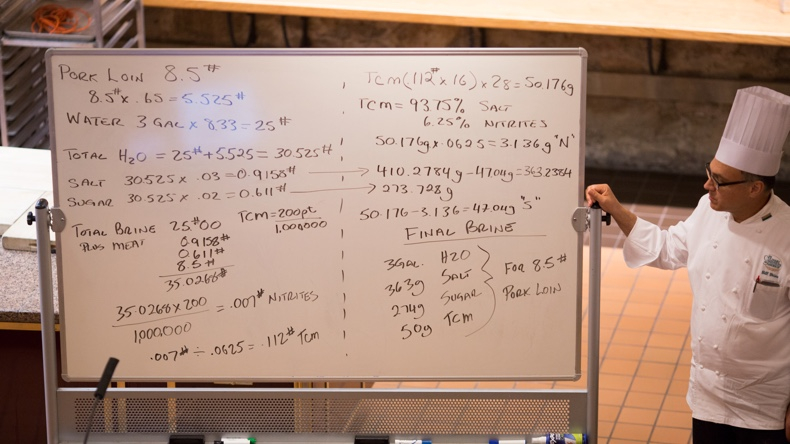 PORK LOIN 8.5#
8.5# x .65 = 5.525#
WATER 3 GAL x 8.33 = 25#
TOTAL H2O = 25# + 5.525 = 30.525#
SALT 30.525 x .03 = 0.9158#
SUGAR 30.525 x .02 = 0.611#
TOTAL BRINE 25.#00
PLUS MEAT 0.9158#
0.611#
8.5#
35.0268#
TCM = 200pt
1,000,000
35.0268 x 200
1,000,000
= .007# NITRITES
.007# ÷ .0625 = .112# TCM
TCM (.112# x 16) x 28 = 50.176g
TCM = 93.75% SALT
6.25% NITRITES
50.176g x .0625 = 3.136g "N"
410.2784g - 47.04g = 363.2384
273.728g
50.176 - 3.136 = 47.04g "S"
FINAL BRINE
3GAL H2O
363g SALT
274g SUGAR
50g TCM
FOR 8.5#
PORK LOIN